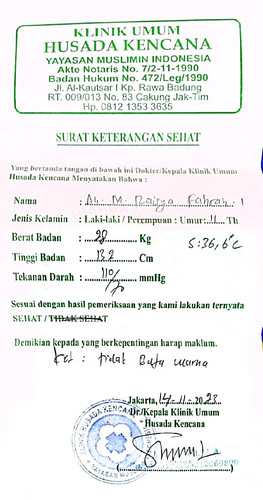 KLINIK UMUM
HUSADA KENCANA
YAYASAN MUSLIMIN INDONESIA
Akte Notaris No. 7/2-11-1990
Badan Hukum No. 472/Leg/1990
Jl. Al-Kautsar I Kp. Rawa Badung
RT. 009/013 No. 83 Cakung Jak-Tim
Hp. 0812 1353 3635
SURAT KETERANGAN SEHAT
Yang bertanda tangan di bawah ini Dokter/Kepala Klinik Umum
Husada Kencana Menyatakan Bahwa :
Nama : An. M.
Jenis Kelamin : Laki-laki / Perempuan : Umur: 11 Th
Berat Badan : 28 Kg S: 36,6°C
Tinggi Badan : 132 Cm
Tekanan Darah : 110/70 mmHg
Sesuai dengan hasil pemeriksaan yang kami lakukan ternyata
SEHAT / TIDAK SEHAT
Demikian kepada yang berkepentingan harap maklum.
Ket : tidak Buta warna
Jakarta, 14-11-2023
Dr./Kepala Klinik Umum
Husada Kencana
KLINIK HUSADA KENCANA
YAYASAN MUSLIMIN